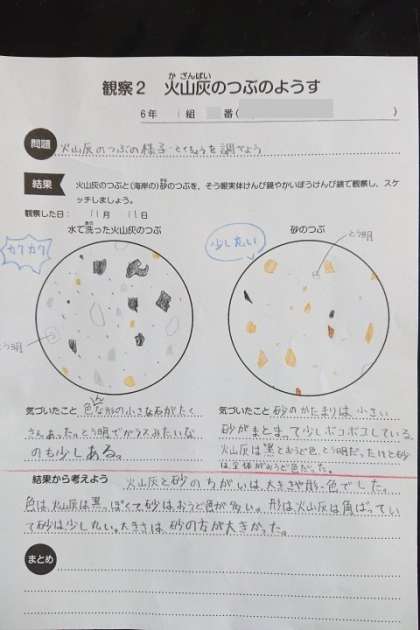 観察2 火山灰のつぶのようす
か ざんばい
6年 1組 番( )
問題 火山灰のつぶの様子・とくちょうを調べよう
結果 火山灰のつぶと(海岸の)砂のつぶを、そう眼実体けんび鏡やかいぼうけんび鏡で観察し、スケ
ッチしましょう。
観察した日: 11月 11日
水で洗った火山灰のつぶ
あら
砂のつぶ
すな
カクカク
少し丸い
とう明
とう明
気づいたこと 色んな形の小さな石がたく
さんあった。とう明でガラスみたいな
のも少しある。
気づいたこと 砂のかたまりは、小さい
砂がまとまって少しボコボコしている。
火山灰は黒とおうど色、とう明だったけど砂
は全体がおうど色だった。
結果から考えよう 火山灰と砂のちがいは、大きさや形・色でした。
色は、火山灰は黒っぽくて、砂は、おうど色が多い。形は火山灰は角ばってい
て砂は少し丸い。大きさは、砂の方が大きかった。
まとめ